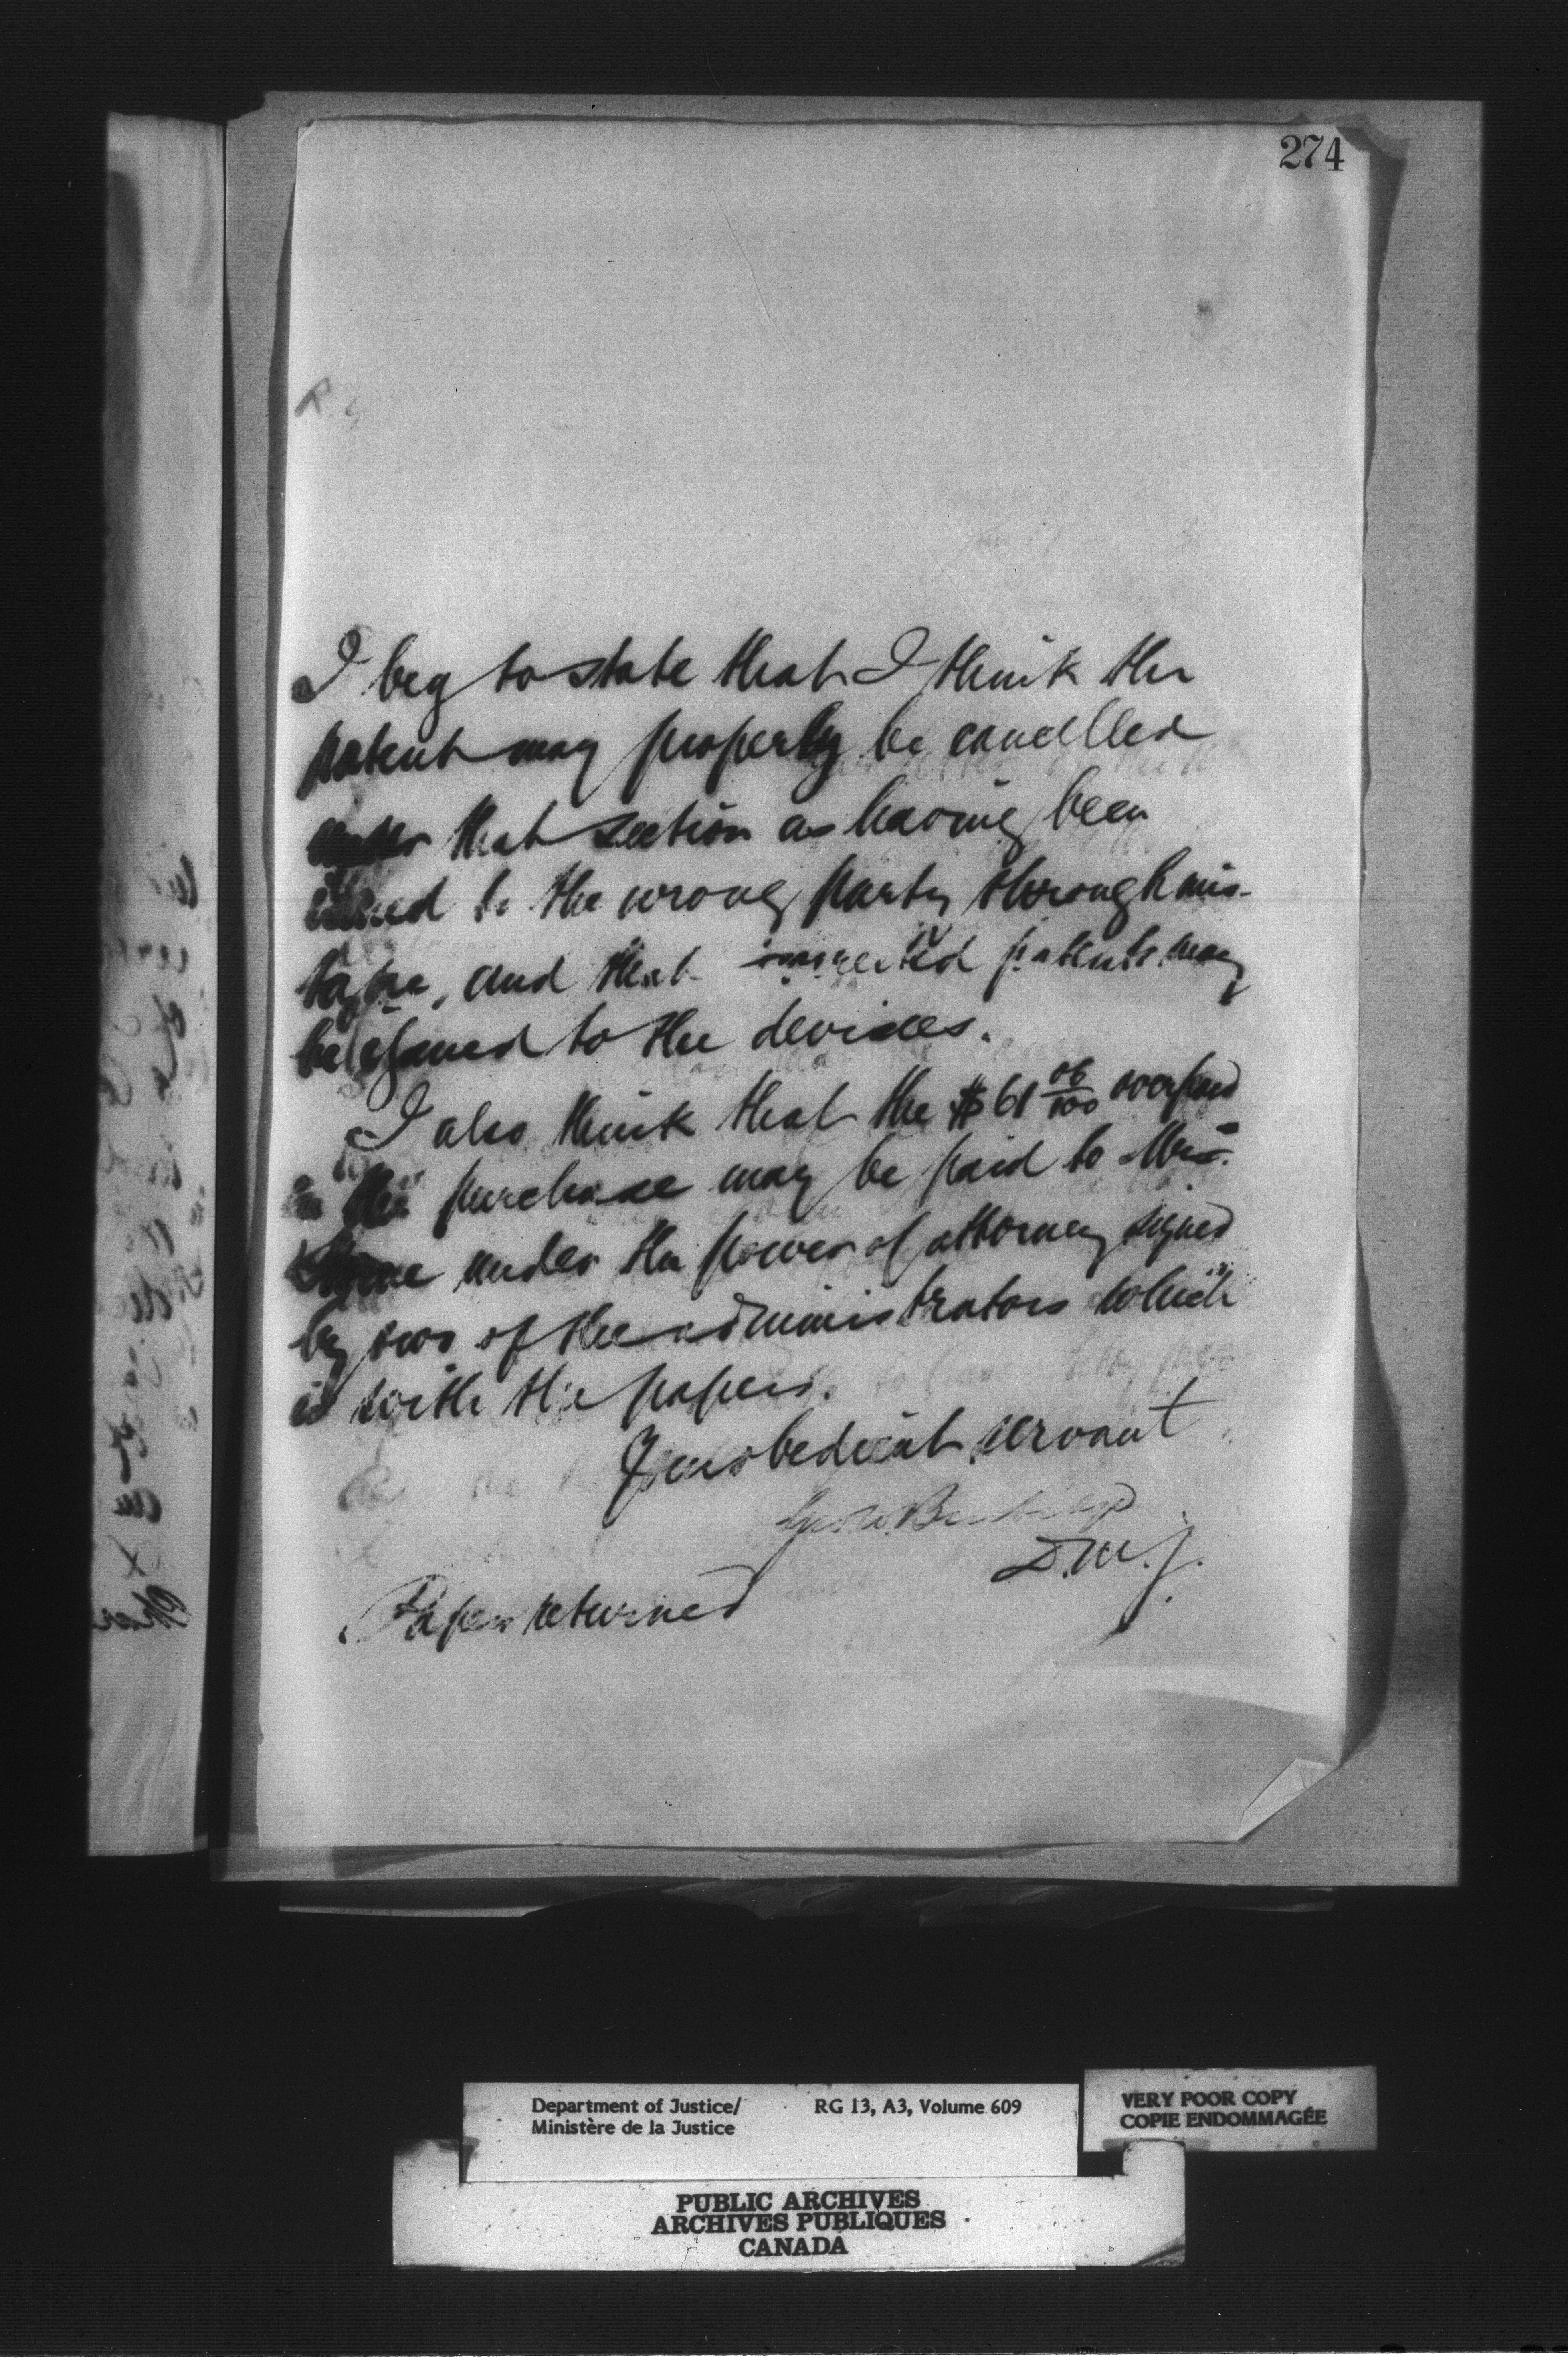 274
I beg to state that I think the
patent may properly be cancelled
under that section as having been
issued to the wrong party through mis-
take, and that corrected patents may
be issued to the devisees.
I also think that the $61 06/100 overpaid
in the purchase may be paid to Mrs.
under the power of attorney signed
by two of the administrators which
is with the papers.
Your obedient servant
Geo. W. Burbidge
D.M.J.
Papers returned
Department of Justice/ RG 13, A3, Volume 609
Ministère de la Justice
VERY POOR COPY
COPIE ENDOMMAGÉE
PUBLIC ARCHIVES
ARCHIVES PUBLIQUES
CANADA